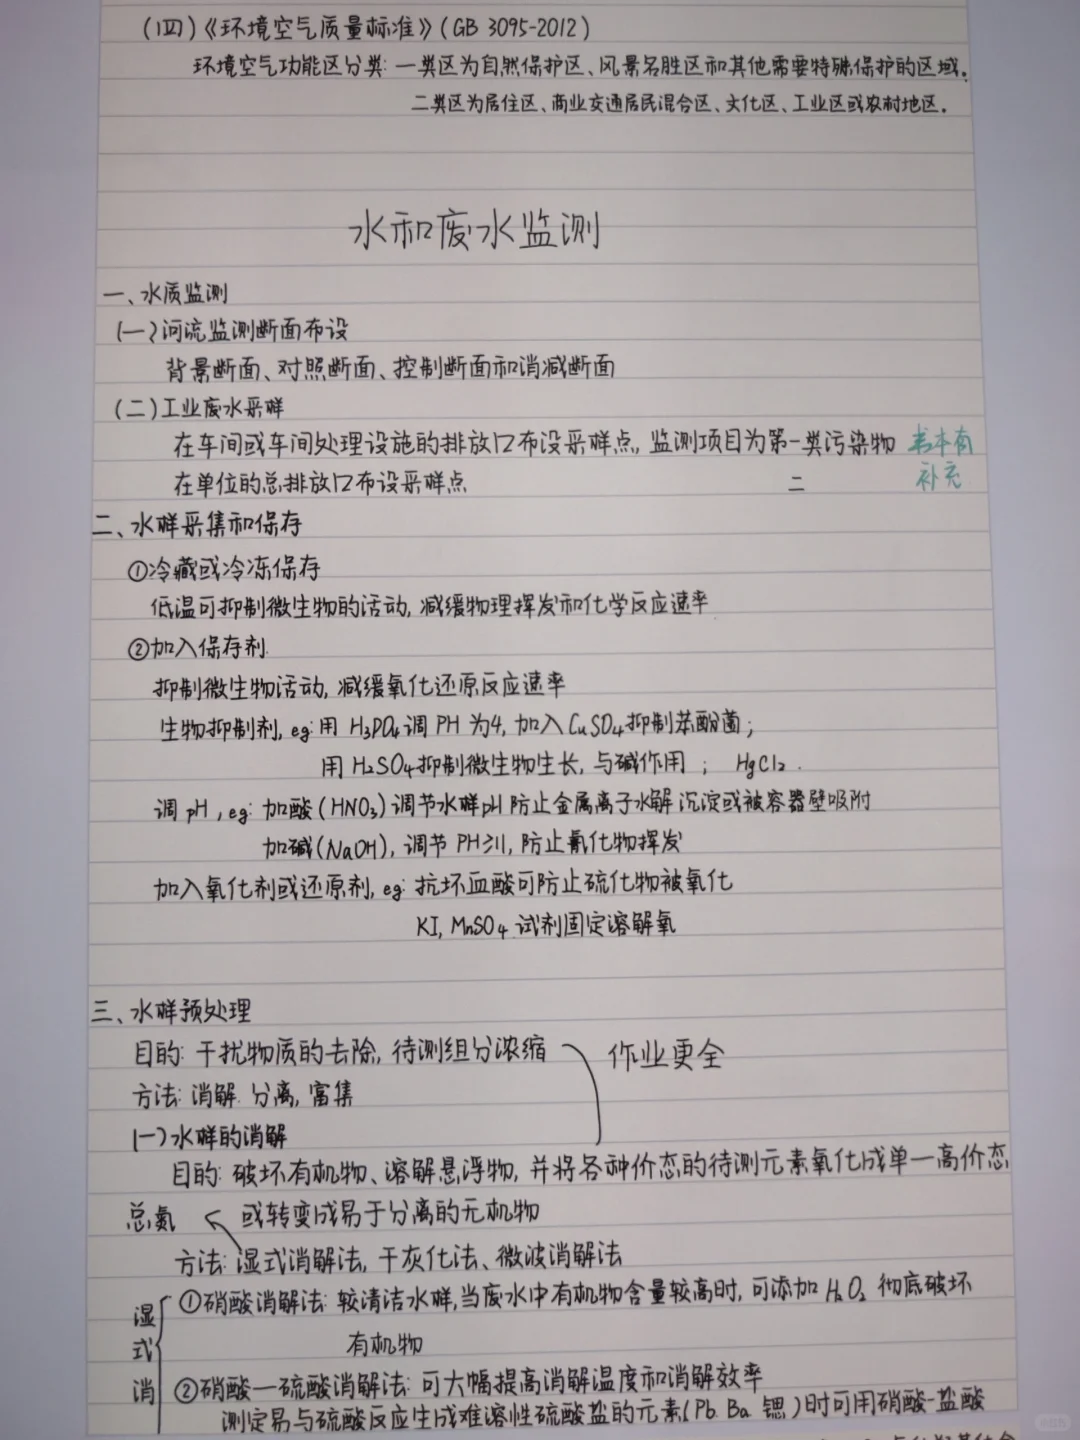 (四)《环境空气质量标准》(GB 3095-2012)
环境空气功能区分类: 一类区为自然保护区、风景名胜区和其他需要特殊保护的区域.
二类区为居住区、商业交通居民混合区、文化区、工业区或农村地区.
水和废水监测
一、水质监测
(一)河流监测断面布设
背景断面、对照断面、控制断面和消减断面
(二)工业废水采样
在车间或车间处理设施的排放口布设采样点, 监测项目为第一类污染物 书本有
在单位的总排放口布设采样点 二 补充
二、水样采集和保存
①冷藏或冷冻保存
低温可抑制微生物的活动, 减缓物理挥发和化学反应速率
②加入保存剂.
抑制微生物活动, 减缓氧化还原反应速率
生物抑制剂, eg: 用 H₃PO₄调 PH 为4, 加入 CuSO₄抑制苯酚菌;
用 H₂SO₄抑制微生物生长, 与碱作用 ; HgCl₂ .
调 pH , eg: 加酸 (HNO₃) 调节水样pH 防止金属离子水解沉淀或被容器壁吸附
加碱(NaOH), 调节 PH≥11, 防止氰化物挥发
加入氧化剂或还原剂, eg: 抗坏血酸可防止硫化物被氧化
KI, MnSO₄ 试剂固定溶解氧
三、水样预处理
目的: 干扰物质的去除, 待测组分浓缩 作业更全
方法: 消解. 分离, 富集
(一)水样的消解
目的: 破坏有机物、溶解悬浮物, 并将各种价态的待测元素氧化成单一高价态
总氮 或转变成易于分离的无机物
方法: 湿式消解法, 干灰化法、微波消解法
湿式消 ①硝酸消解法: 较清洁水样, 当废水中有机物含量较高时, 可添加 H₂O₂ 彻底破坏
有机物
②硝酸—硫酸消解法: 可大幅提高消解温度和消解效率
测定易与硫酸反应生成难溶性硫酸盐的元素(Pb Ba 锶)时可用硝酸-盐酸